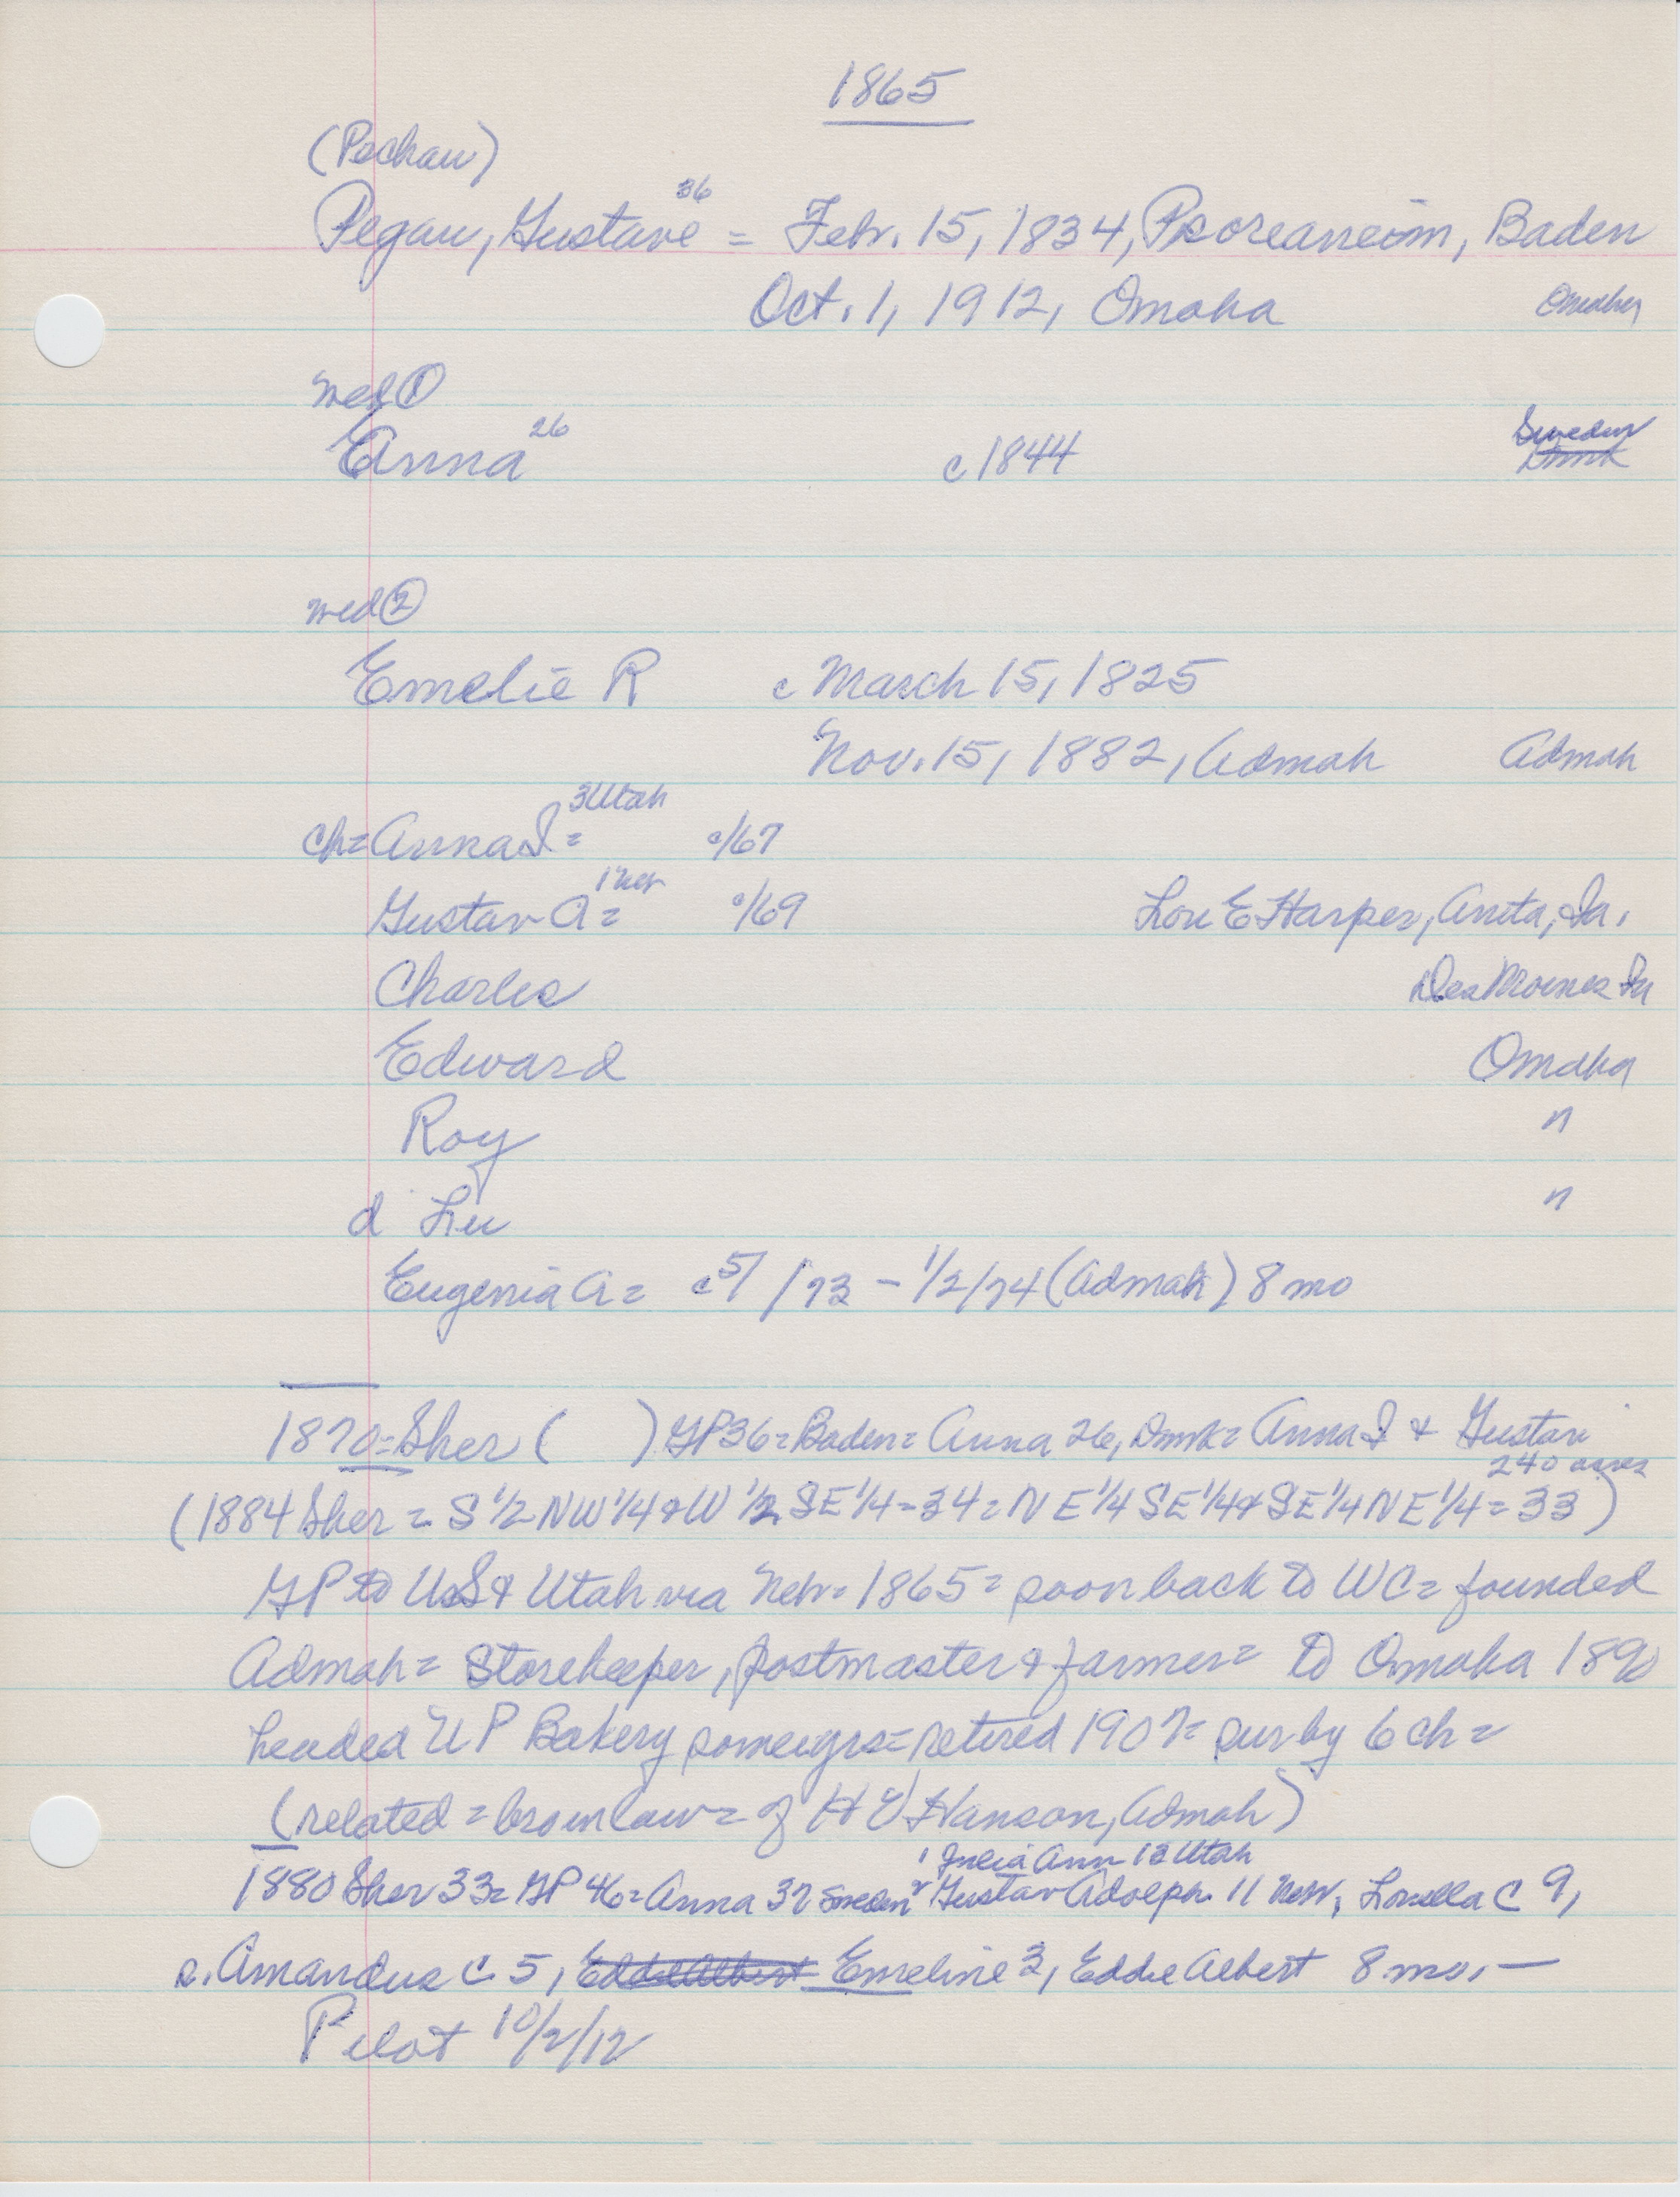 1865
(Pechau)
Pegau, Gustave 36 = Febr. 15, 1834, Baden
Oct. 1, 1912, Omaha
med ①
Anna 26 c 1844 Sweden
med ②
Emelie R c March 15, 1825
Nov. 15, 1882, Admah Admah
ch = Anna I = 3 Utah c/67
Gustav A = 1 Neb c/69 Lou E Harper, Anita, Ia.
Charles Des Moines Ia
Edward Omaha
Roy "
d Lu "
Eugenia A = c 5/ /73 - 1/2/74 (Admah) 8 mo
1870 = Sher ( ) GP 36 = Baden = Anna 26, Dmk = Anna I & Gustav
240 acres
(1884 Sher = S 1/2 NW 1/4 & W 1/2 SE 1/4 - 34 = NE 1/4 SE 1/4 & SE 1/4 NE 1/4 = 33)
GP to US & Utah via Nebr. 1865 = soon back to WC = founded
Admah = Storekeeper, postmaster & farmer = to Omaha 1890
headed UP Bakery some yrs = retired 1907 = sur by 6 ch =
(related = bro in law = of H Hanson, Admah)
1 Julia Ann 12 Utah
1880 Sher 33 = GP 46 = Anna 37 Sweden 2 Gustav Adolph 11 Nebr, Louella C 9,
s. Amandus C 5, Eddie Albert Emeline 3, Eddie Albert 8 mo. —
Pilot 10/2/12